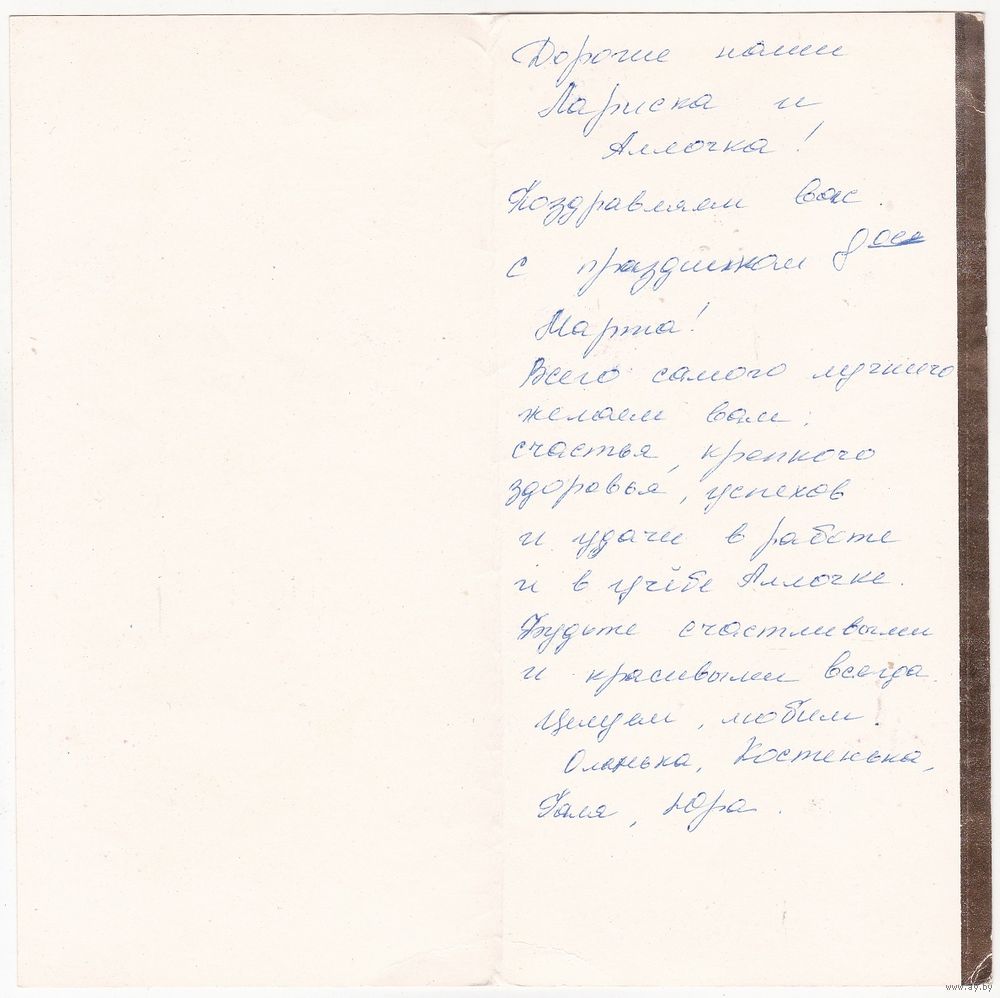 Дорогие наши
Лариска и
Аллочка!
Поздравляем вас
с праздником 8
Марта!
Всего самого лучшего
желаем вам:
счастья, крепкого
здоровья, успехов
и удачи в работе
и в учёбе Аллочке.
Будьте счастливыми
и красивыми всегда.
Целуем, любим.
Оленька, Костенька,
Галя, Юра.
www.ay.by